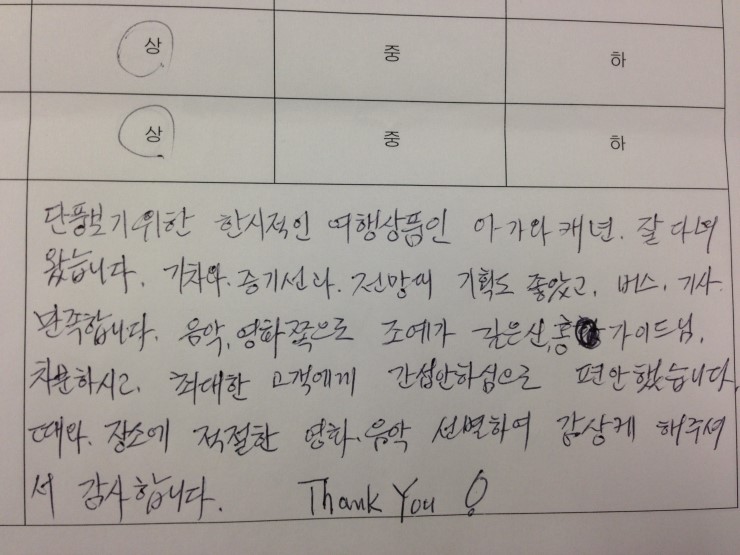 상 중 하
상 중 하
단풍보기위한 한시적인 여행상품인 아가와캐년. 잘 다녀
왔습니다. 기차와. 증기선과. 전망의 기획도 좋았고, 버스, 기사
만족합니다. 음악, 영화쪽으로 조예가 깊은신, 홍 가이드님,
차분하시고, 최대한 고객에게 간섭안하심으로 편안했습니다,
때와. 장소에 적절한 영화.음악 선별하여 감상케 해주셔
서 감사합니다. Thank You !